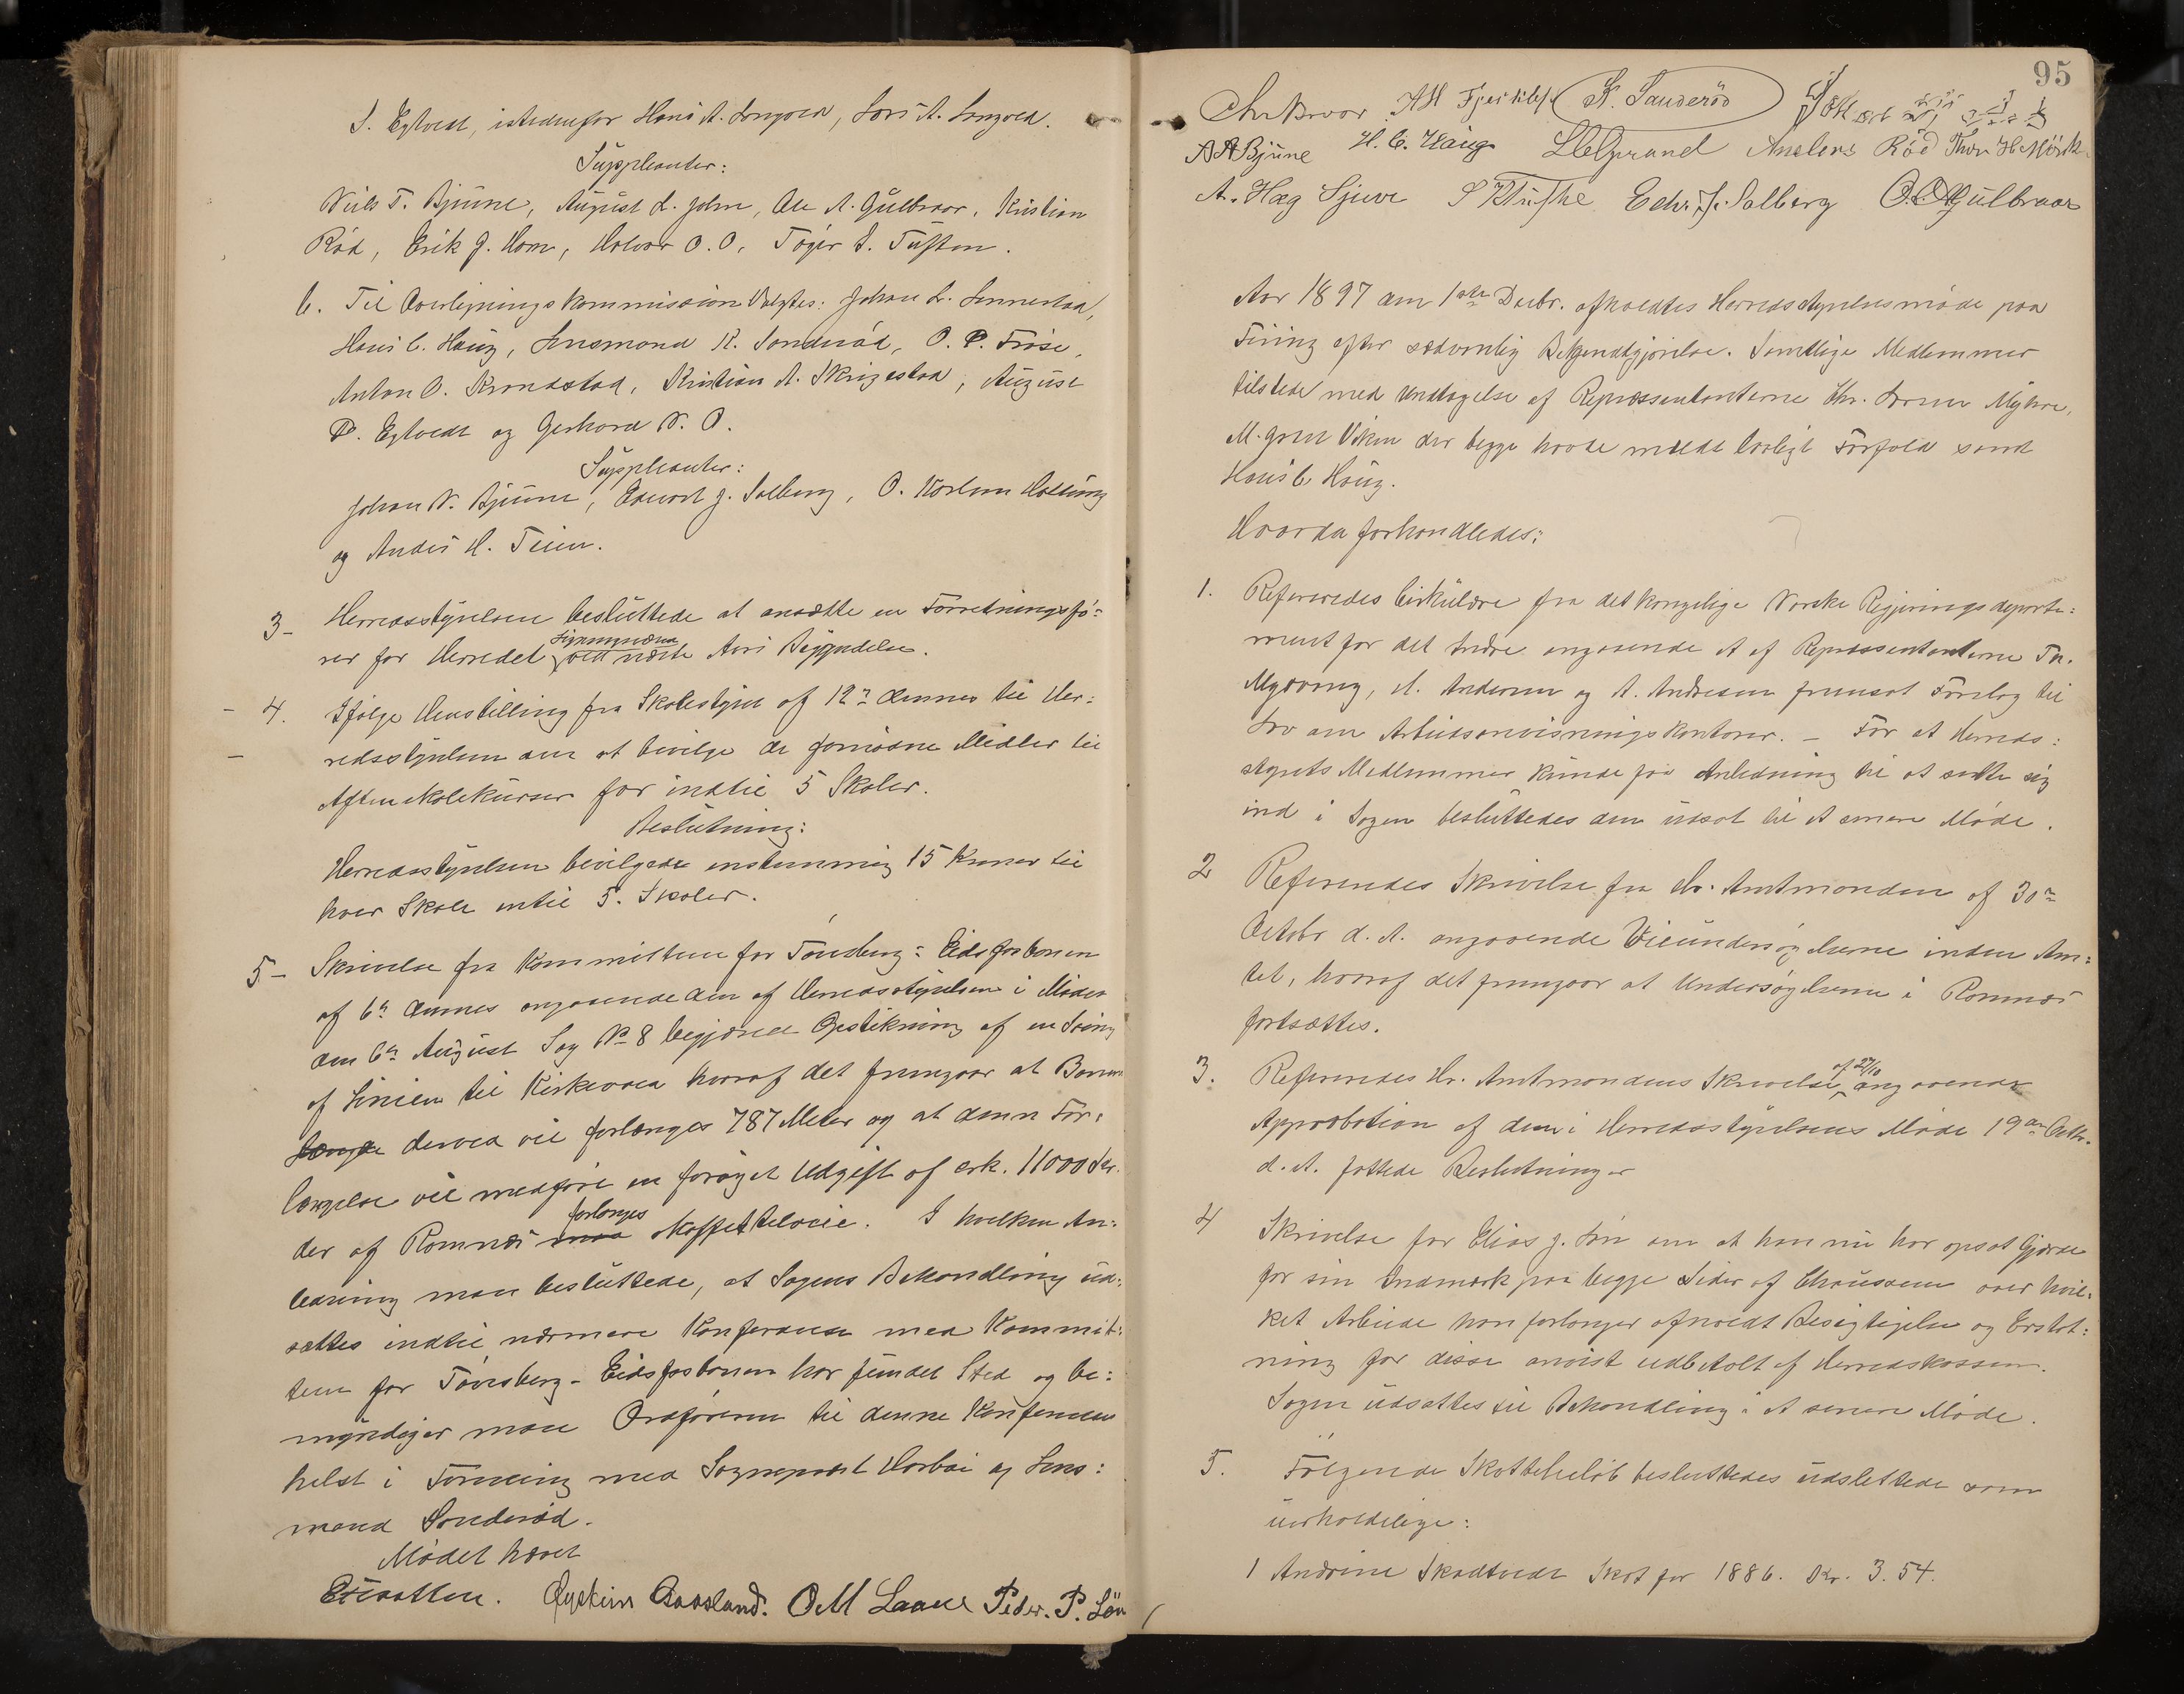 S. Eztvedt, istedenfor Hans A. Langved, Lars A. Langved.
Suppleanter:
Niels T. Bjune, August L. John, Ole A. Gulbraar, Kristian
Rød, Erik J. Hom, Halvor O. O, Tøger S. Tufton.
6. Til Overligningskommission Valgtes: Johan L. Linnestad,
Hans C. Haug, Lensmand K. Sanderød, O. P. Trøse,
Anton O. Krondstad, Kristian A. Skrigestad, August
P. Egtvedt og Gerhard N. O.
Suppleanter:
Johan N. Bjune, Edvart J. Solberg, O. Karlsen Hottung
og Anders H. Teien.
3- Herredsstyrelsen besluttede at ansætte en Forretningsfø-
rer for Herredet ved næste Aars Begyndelse.
4. Ifølge Henstilling fra Skolestyret af 12te dennes til Her:
redsstyrelsen om at bevilge de fornødne Midler til
Aftenskolekurser for indtil 5 Skoler.
Beslutning:
Herredsstyrelsen bevilgede enstemmig 15 Kroner til
hver Skole intil 5. Skoler.
5- Skrivelse fra Kommitteen for Tønsberg: Eidsfosbanen
af 6te dennes angaaende den af Herredsstyrelsen i Mødet
den 6te August Sag No 8 begjærede Opstikning af en Sving
af Linien til Kirkevaa hvoraf det fremgaar at Banen
længde derved vil forlænges 787 Meter og at denne For:
længelse vil medføre en forøget Udgift af crk. 11000 Kr.
forlanges
der af Ramnes maa skaffet tilveie. I hvilken An:
ledning man besluttede, at Sagens Behandling ud:
sættes indtil nærmere Konferanse med Kommit:
teen for Tønsberg-Eidsfosbanen har fundet Sted og be:
myndiger man Ordføreren til denne Konferanse
helst i Forening med Sogneprest Horbøe og Lens:
mand Sanderød.
Mødet hævet
Øystein Aasland. O M Laane Peder. P. Lön
95
K. Sanderöd
A A Bjune H. C. Haug Anders Röd Thor H Mörk
A. Hag Sjuve S K Tufte Edv. J. Solberg O. A. Gulbraar
Aar 1897 den 1ste Decbr. afholdtes Herredsstyrelsesmøde paa
Fining efter sædvanlig Bekjendtgjørelse. Samtlige Medlemmer
tilstede med Undtagelse af Repræsentanterne Hr. Larsen Myhre,
M. Gren Viken der begge havde meldt lovligt Forfald samt
Hans C. Haug.
Hvorda forhandledes:
1. Refereredes Cirkulære fra det kongelige Norske Regjerings departe:
ment for det Indre angaaende et af Repræsentanterne Fr.
Mysvang, A. Andersen og A. Andresen fremsat Forslag til
Lov om Arbeidsanvisningskontorer. - For at Herreds:
styrets Medlemmer kunde faa Anledning til at sætte sig
ind i Sagen besluttedes den udsat til et senere Møde.
2 Refereredes Skrivelse fra Hr. Amtmanden af 30te
Octobr d. A. angaaende Veiundersøgelserne inden Am:
tet, hvoraf det fremgaar at Undersøgelserne i Ramnes
fortsættes.
3. Refereredes Hr. Amtmandens Skrivelse af 27/10 angaaende
Approbation af den i Herredsstyrelsens Møde 19de Octbr.
d. A. fattede Beslutninger
4 Skrivelse fra Elias J. Løn om at han nu har opsat Gjerde
for sin Indmark paa begge Sider af Chausseen over hvil:
ket Arbeide han forlanger afholdt Besigtigelse og Erstat:
ning for disse anvist udbetalt af Herredskassen.
Sagen udsattes til Behandling i et senere Møde.
5. Følgende Skattebeløb besluttedes udslettede som
uerholdelige:
1 Andrine Skadtvedt Skat for 1886. Kr. 3.54.